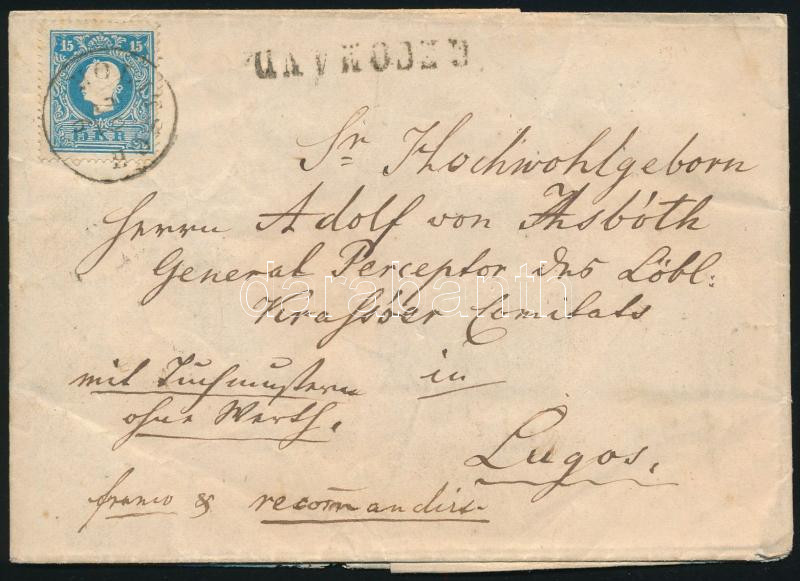 15 15
15 KR
RECOMAND
Sr Hochwohlgeborn
Herrn Adolf von Asbóth
General Perceptor des Löbl:
Krassóer Comitats
darabanth
mit Tuchmustern in
ohne Werth.
Lugos.
franco & recom̄andirt